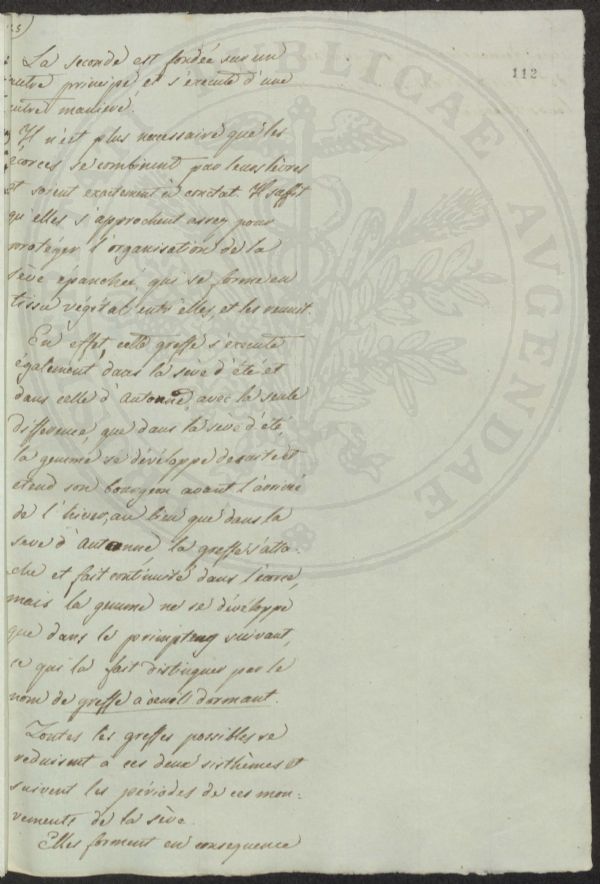 112
La seconde est fondée sur un
autre principe et s'execute d'une
autre maniere.
Il n'est plus necessaire que les
écorces se combinent par leurs lèvres
et soient exactement en contat. Il suffit
qu'elles s'approchent assez pour
protéger l'organisation de la
sève epanchée, qui se forme en
tissu végétal entr'elles, et les reunit.
En effet, cette greffe s'execute
également dans la sève d'été et
dans celle d'Automne, avec la seule
difference, que dans la sève d'été,
la gemme se développe de suite et
etend son bourgeon avant l'arrivée
de l'hiver, au lieu que dans la
seve d'Automne la greffe s'atta-
che et fait continuité dans l'écorce,
mais la gemme ne se développe
que dans le printemps suivant,
ce qui la fait distinguer par le
nom de greffe à oeuil dormant.
Toutes les greffes possibles se
reduisent a ces deux sisthèmes et
suivent les périodes de ces mou=
vements de la sève.
Elles forment en consequence
PUBLICAE AVGENDAE